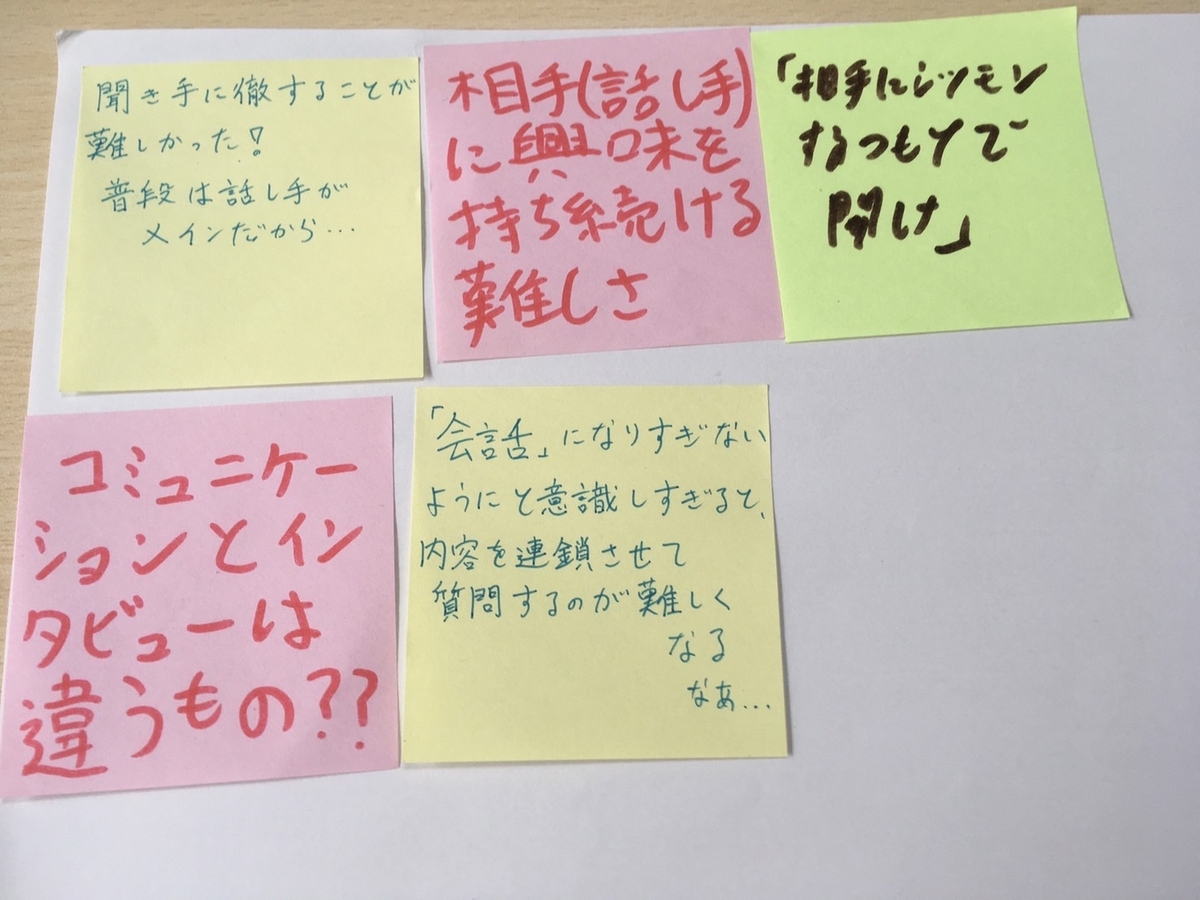 聞き手に徹することが
難しかった!
普段は話し手が
メインだから…
相手(話し手)
に興味を
持ち続ける
難しさ
「相手にシツモン
するつもりで
聞け」
コミュニケー
ションとイン
タビューは
違うもの??
「会話」になりすぎない
ようにと意識しすぎると、
内容を連鎖させて
質問するのが難しく
なる
なあ…